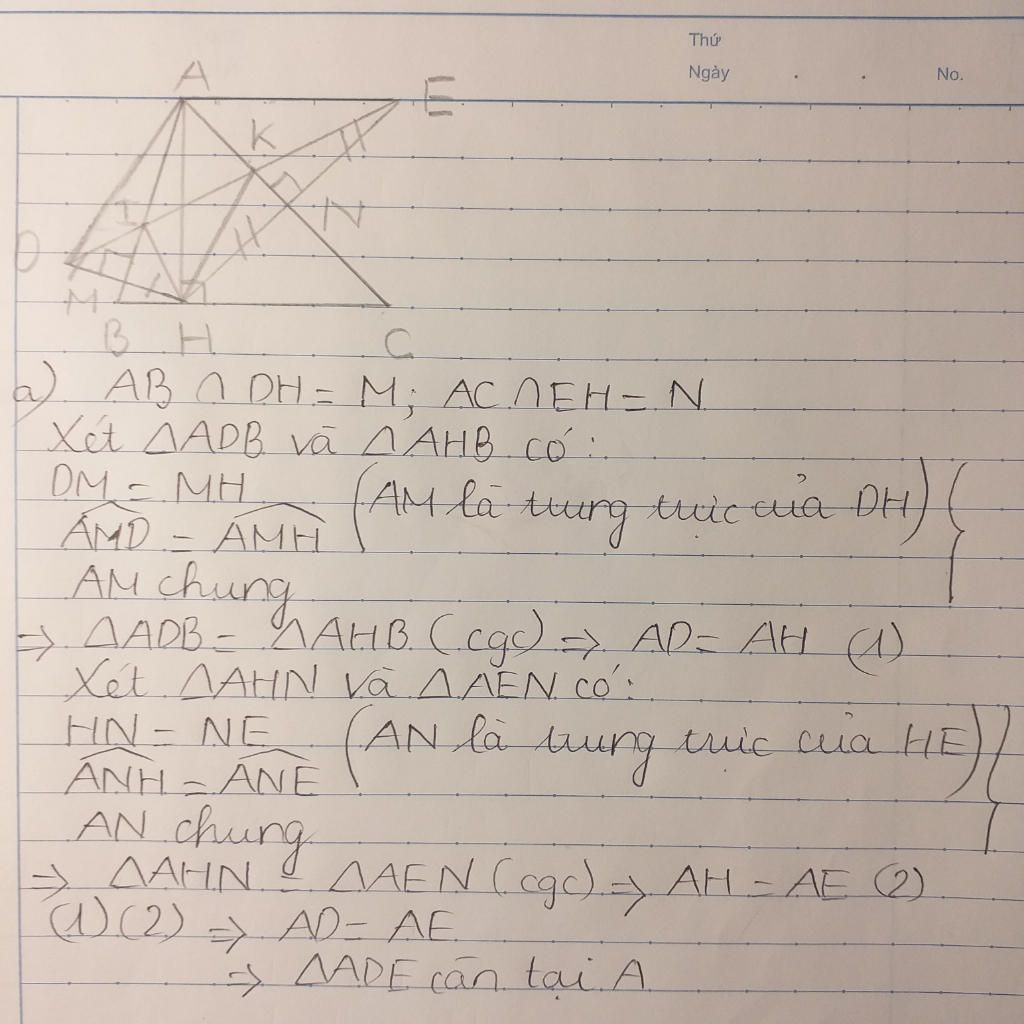 Thứ
Ngày . . No.
A
E
K
I
N
D
M
B H C
a) AB ∩ DH = M; AC ∩ EH = N
Xét △ADB và △AHB có:
DM = MH (AM là trung trực của DH) {
\widehat{AMD} = \widehat{AMH}
AM chung
=> △ADB = △AHB (cgc) => AD = AH (1)
Xét △AHN và △AEN có:
HN = NE (AN là trung trực của HE) }
\widehat{ANH} = \widehat{ANE}
AN chung
=> △AHN = △AEN (cgc) => AH = AE (2)
(1)(2) => AD = AE
=> △ADE cân tại A